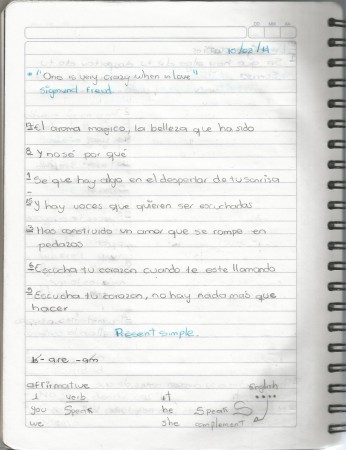 10/02/14
"One is very crazy when in love"
Sigmund Freud
7 El aroma magico, la belleza que ha sido
8 Y no se por qué
1 Se que hay algo en el despertar de tu sonrisa
6 y hay voces que quieren ser escuchadas
3 Has construido un amor que se rompe en
pedazos
4 Escucha tu corazon cuando te este llamando
5 Escucha tu corazon, no hay nada mas que
hacer
Present simple.
is - are - am
affirmative English
I verb it
you Speak he Speaks
we she complement